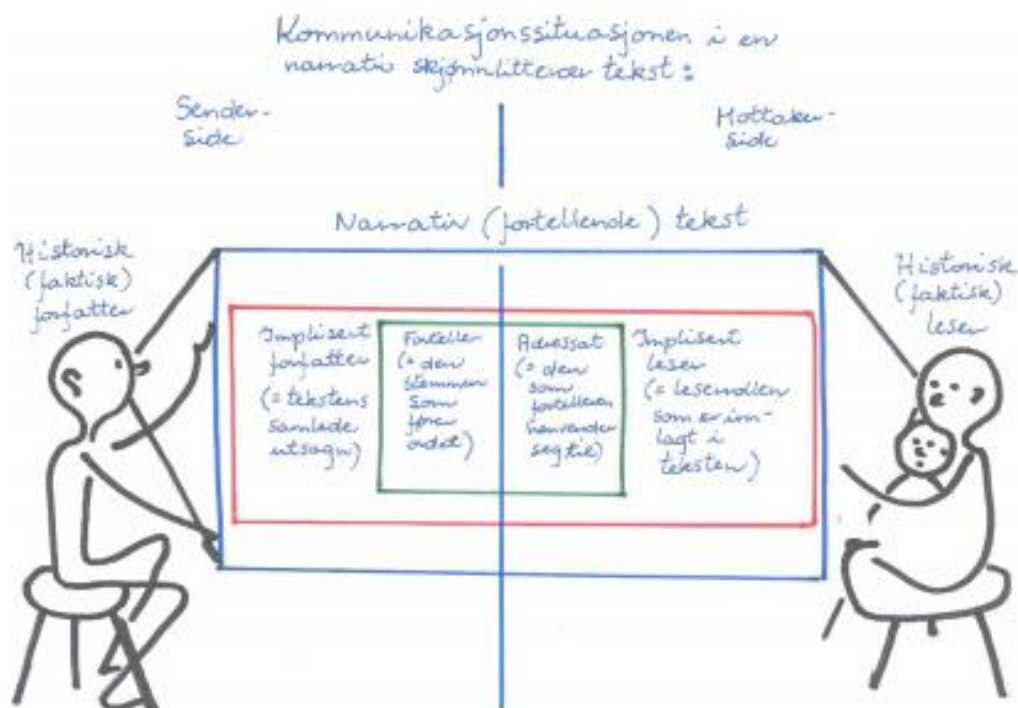 Kommunikasjonssituasjonen i en
narrativ skjønnlitterær tekst:
Sender-
side
Mottaker-
side
Narrativ (fortellende) tekst
Historisk
(faktisk)
forfatter
Historisk
(faktisk)
leser
Implisert
forfatter
(= tekstens
samlede
utsagn)
Forteller
(= den
stemmen
som
fører
ordet)
Adressat
(= den
som
fortelleren
henvender
seg til)
Implisert
leser
(= leserollen
som er inn-
lagt i
teksten)